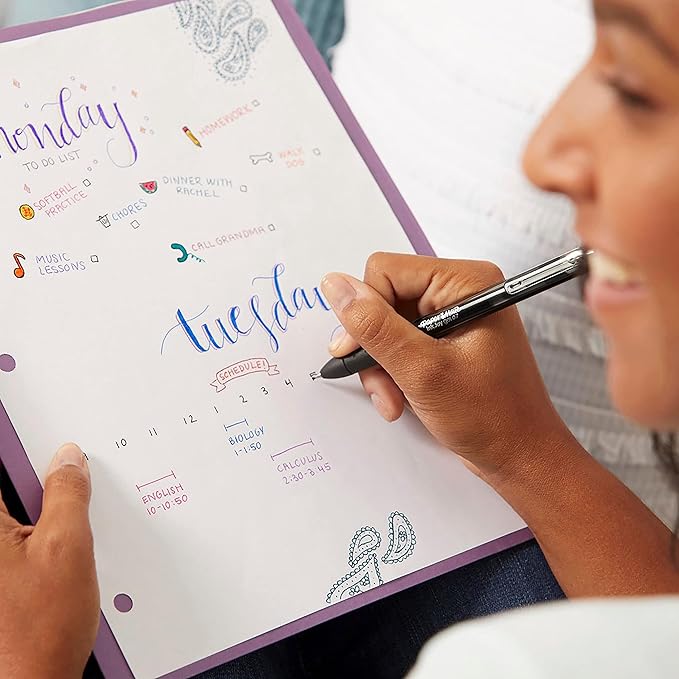 monday
TO DO LIST
HOMEWORK
WALK
DOG
SOFTBALL
PRACTICE
CHORES
DINNER WITH
RACHEL
MUSIC
LESSONS
CALL GRANDMA
tuesday
SCHEDULE!
10 11 12 1 2 3 4 5
ENGLISH
10-10:50
BIOLOGY
1-1:50
CALCULUS
2:30-3:45
PAPER MATE
InkJoy Gel 0.7